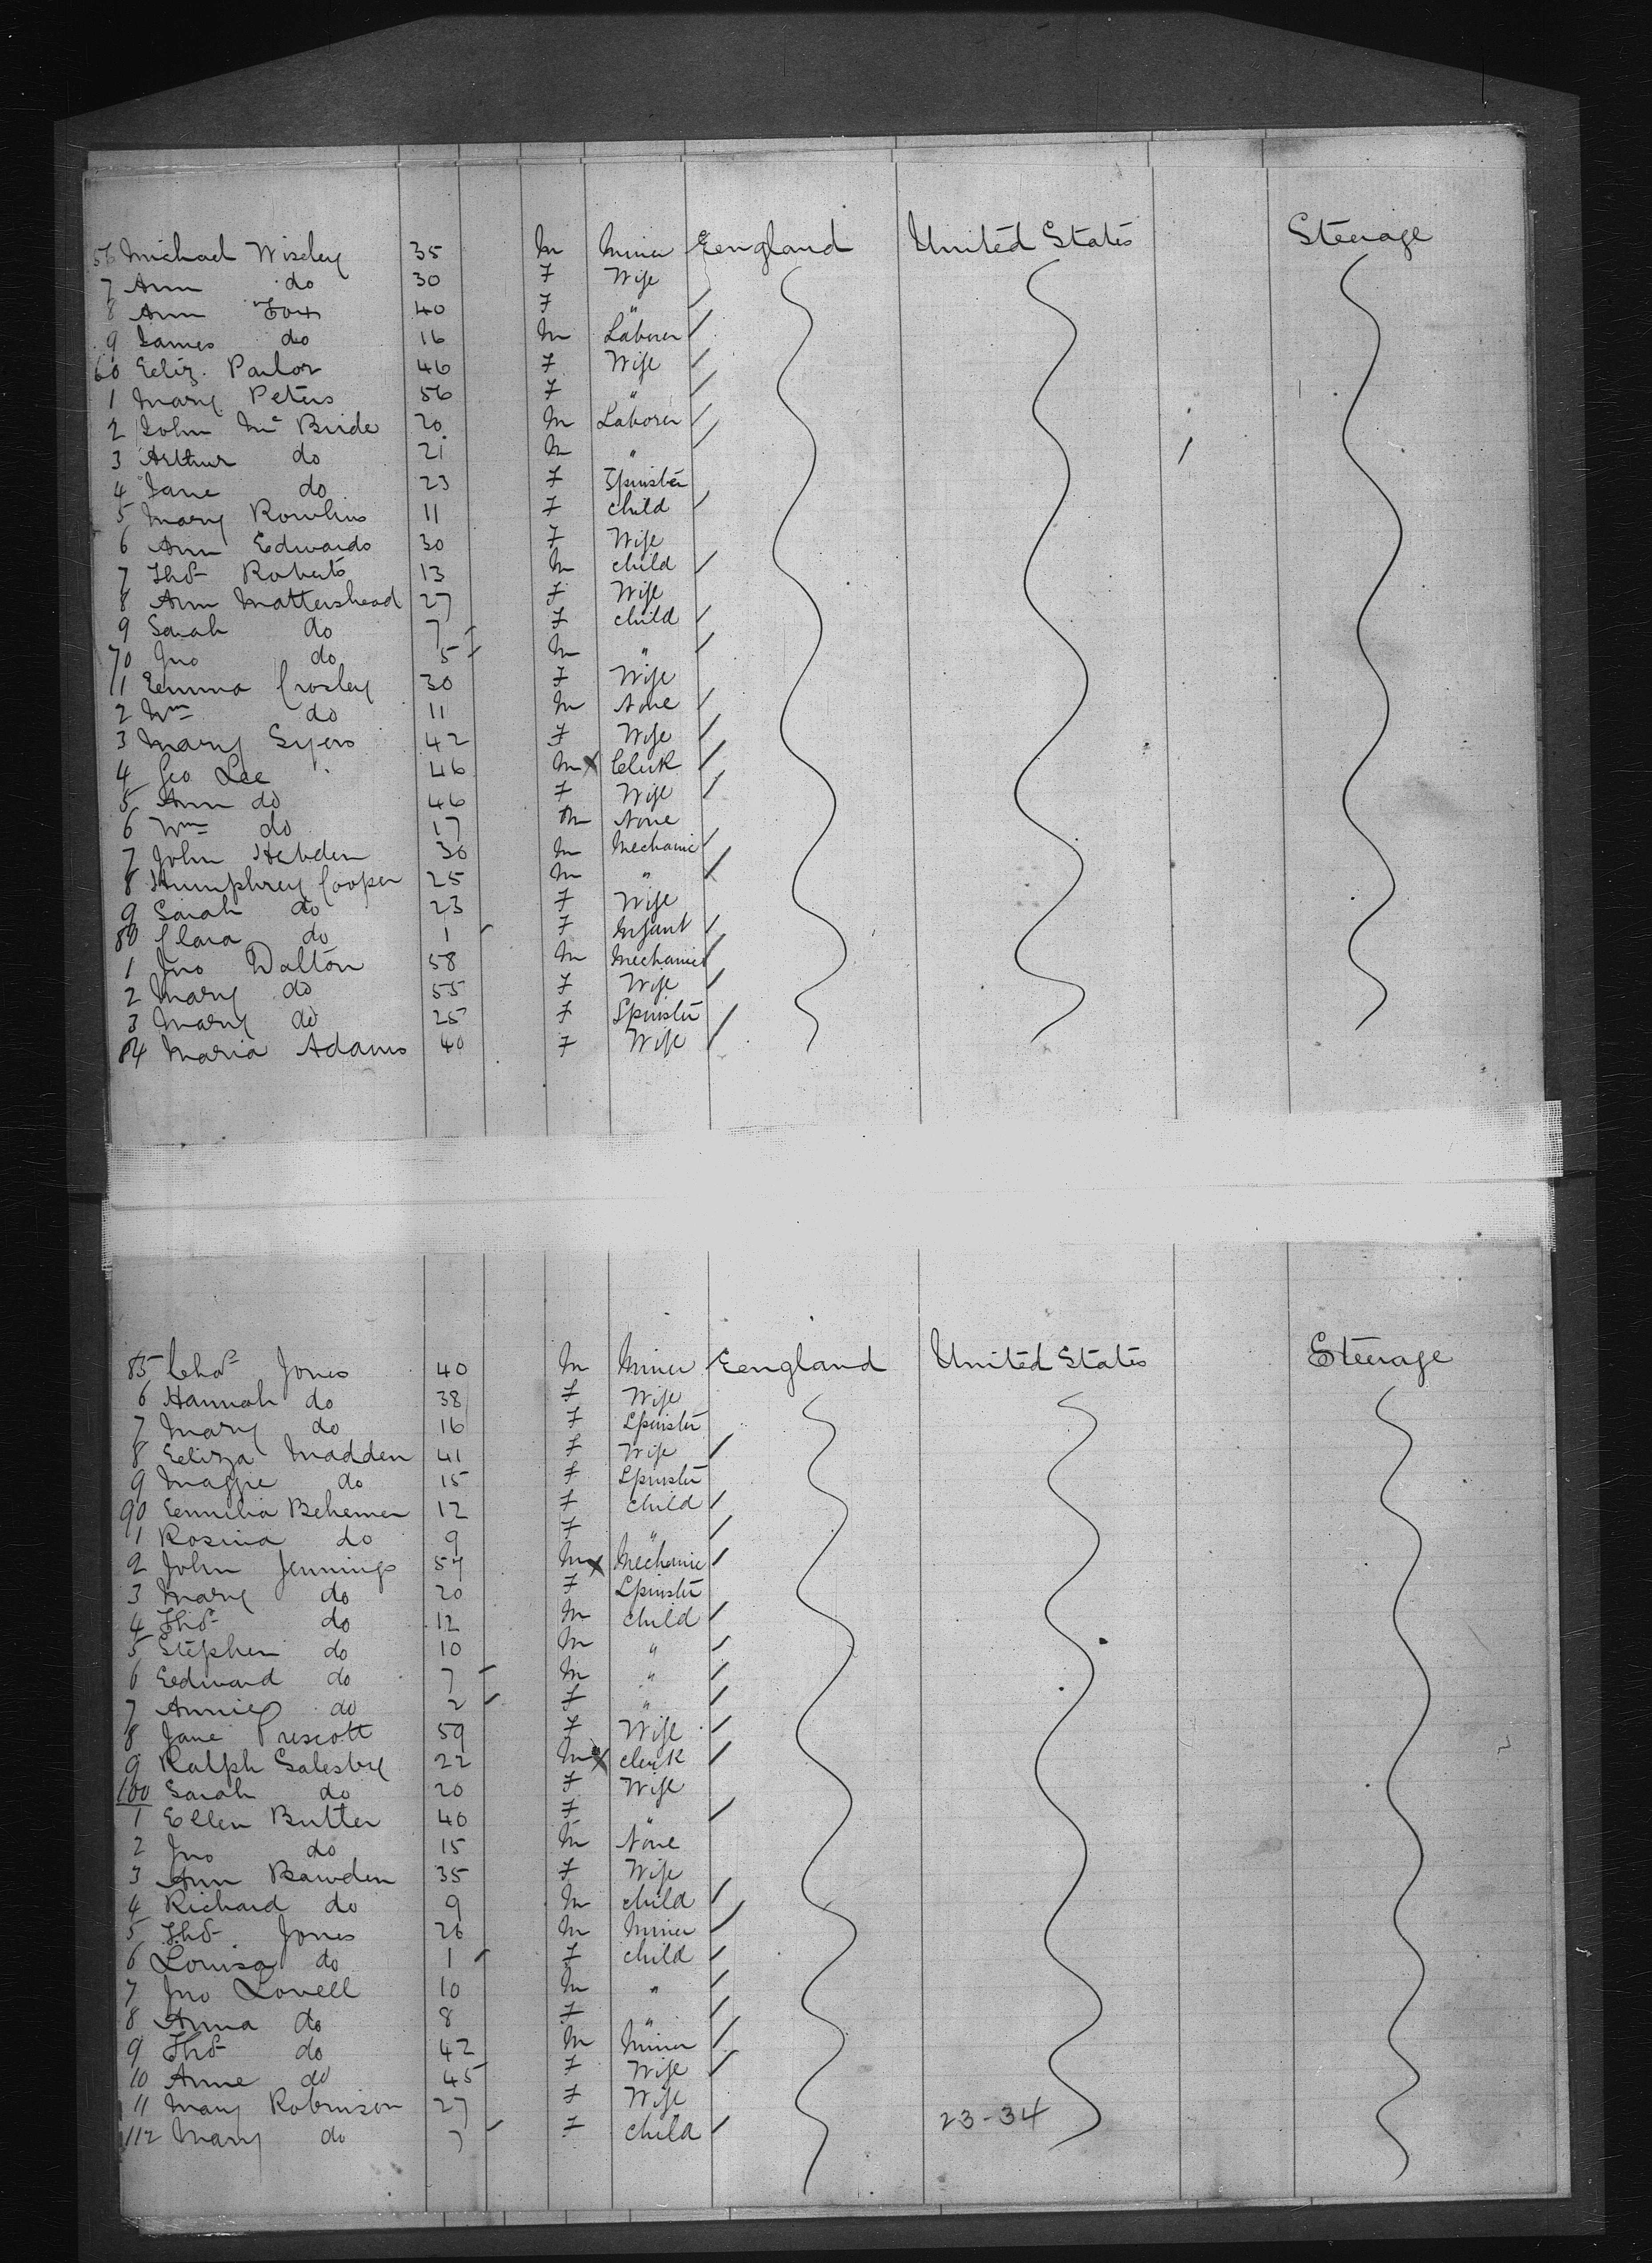 56 Michael Wiseley 35 M Miner England United States Steerage
7 Ann do 30 F Wife
8 Ann Fox 40 F "
9 James do 16 M Laborer
60 Eliz. Parlor 46 F Wife
1 Mary Peters 56 F "
2 John McBride 20 M Laborer
3 Arthur do 21 M "
4 Jane do 23 F Spinster
5 Mary Rowlins 11 F child
6 Ann Edwards 30 F Wife
7 Thos Roberts 13 M child
8 Ann Mattershead 27 F Wife
9 Sarah do 7 F child
70 Jno do 5 M "
11 Emma Crosley 30 F Wife
2 Wm do 11 M None
3 Mary Syers 42 F Wife
4 Geo Lee 46 M X Clerk
5 Ann do 46 F Wife
6 Wm do 17 M None
7 John Hebden 30 M Mechanic
8 Humphrey Cooper 25 M "
9 Sarah do 23 F Wife
80 Clara do 1 F Infant
1 Jno Dalton 58 M Mechanic
2 Mary do 55 F Wife
3 Mary do 25 F Spinster
84 Maria Adams 40 F Wife
85 Chas Jones 40 M Miner England United States Steerage
6 Hannah do 38 F Wife
7 Mary do 16 F Spinster
8 Eliza Madden 41 F Wife
9 Maggie do 15 F Spinster
90 Emilia Behemer 12 F child
1 Rosina do 9 F "
2 John Jennings 54 M X Mechanic
3 Mary do 20 F Spinster
4 Thos do 12 M child
5 Stephen do 10 M "
6 Edward do 7 M "
7 Annie do 2 F "
8 Jane Prescott 59 F Wife
9 Ralph Salesbry 22 M X clerk
100 Sarah do 20 F Wife
1 Ellen Butter 40 F "
2 Jno do 15 M None
3 Ann Bawden 35 F Wife
4 Richard do 9 M child
5 Thos Jones 26 M Miner
6 Louisa do 1 F child
7 Jno Lovell 10 M "
8 Anna do 8 F "
9 Thos do 42 M Miner
10 Anne do 45 F Wife
11 Mary Robinson 27 F Wife
112 Mary do 7 F child 23-34